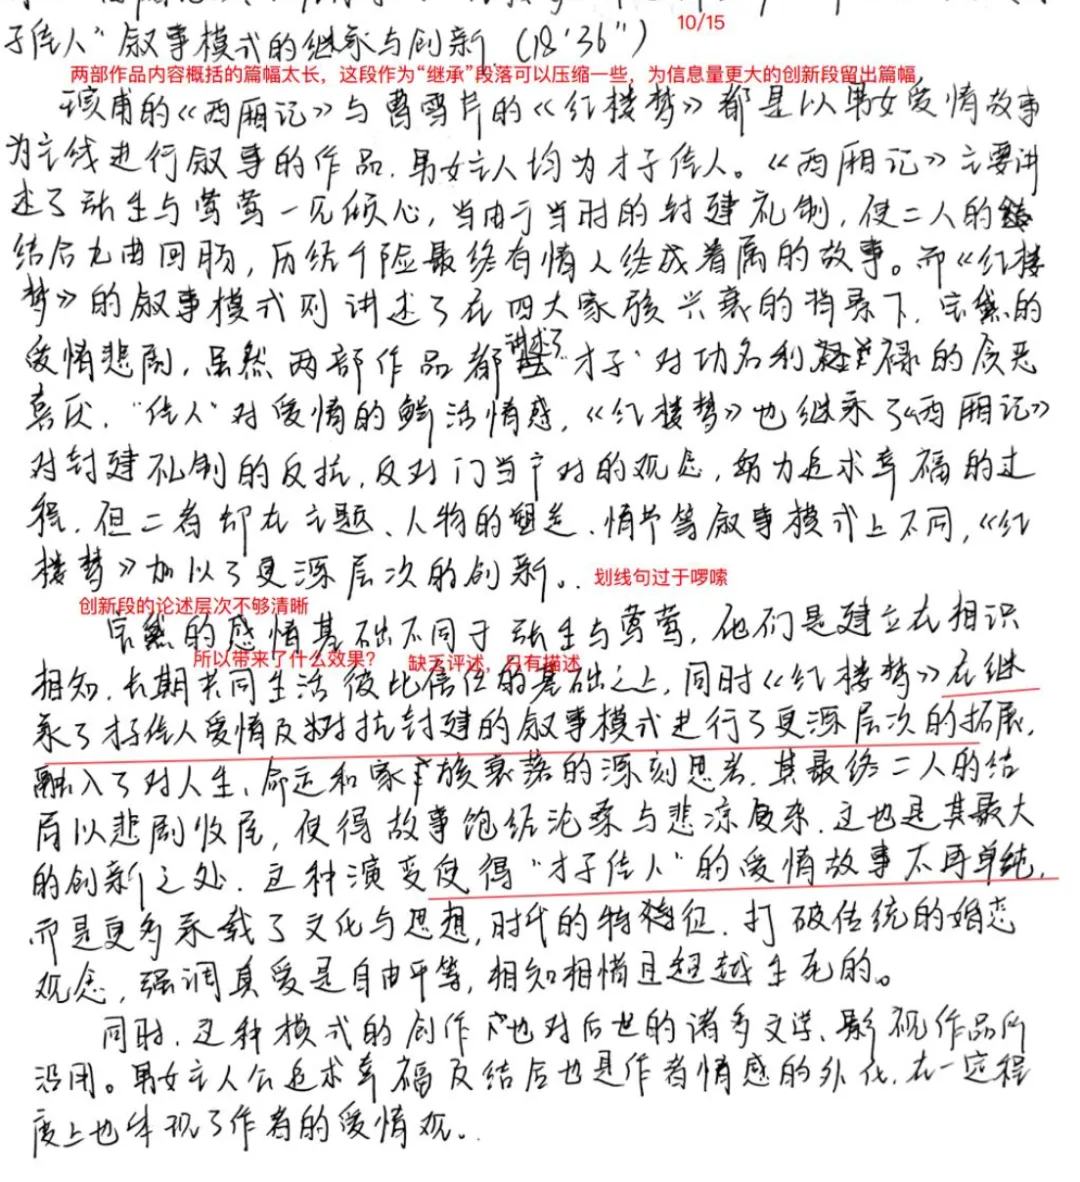 10/15
子佳人”叙事模式的继承与创新.(18'36")
两部作品内容概括的篇幅太长，这段作为“继承”段落可以压缩一些，为信息量更大的创新段留出篇幅，
甫的《西厢记》与曹雪芹的《红楼梦》都是以男女爱情故事
为主线进行叙事的作品.男女主人均为才子佳人。《西厢记》主要讲
述了张生与莺莺一见倾心，当由于当时的封建礼制，使二人的
结合九曲回肠，历经千险最终有情人终成眷属的故事。而《红楼
梦》的叙事模式则讲述了在四大家族兴衰的背景下.宝黛的
爱情悲剧，虽然两部作品都讲述了“才子”对功名利禄的厌恶
喜厌.“佳人”对爱情的鲜活情感，《红楼梦》也继承了《西厢记》
对封建礼制的反抗，反对门当户对的观念，努力追求幸福的过
程.但二者却在主题、人物的塑造、情节等叙事模式上不同，《红
楼梦》加以了更深层次的创新。.
划线句过于啰嗦
创新段的论述层次不够清晰
宝黛的感情基础不同于张生与莺莺，他们是建立在相识
所以带来了什么效果？ 缺乏评述，只有描述
相知.长期共同生活彼此信任的基础之上，同时《红楼梦》在继
承了才子佳人爱情及对抗封建的叙事模式进行了更深层次的拓展，
融入了对人生、命运和家族衰落的深刻思考.其最终二人的结
局以悲剧收尾，使得故事饱经沧桑与悲凉复杂.这也是其最大
的创新之处.这种演变使得“才子佳人”的爱情故事不再单纯，
而是更多承载了文化与思想，时代的特征.打破传统的婚恋
观念，强调真爱是自由平等，相知相惜且超越生死的。
同时.这种模式的创作也对后世的诸多文学、影视作品所
沿用。男女主人公追求幸福及结合也是作者情感的外化.在一定程
度上也体现了作者的爱情观。.